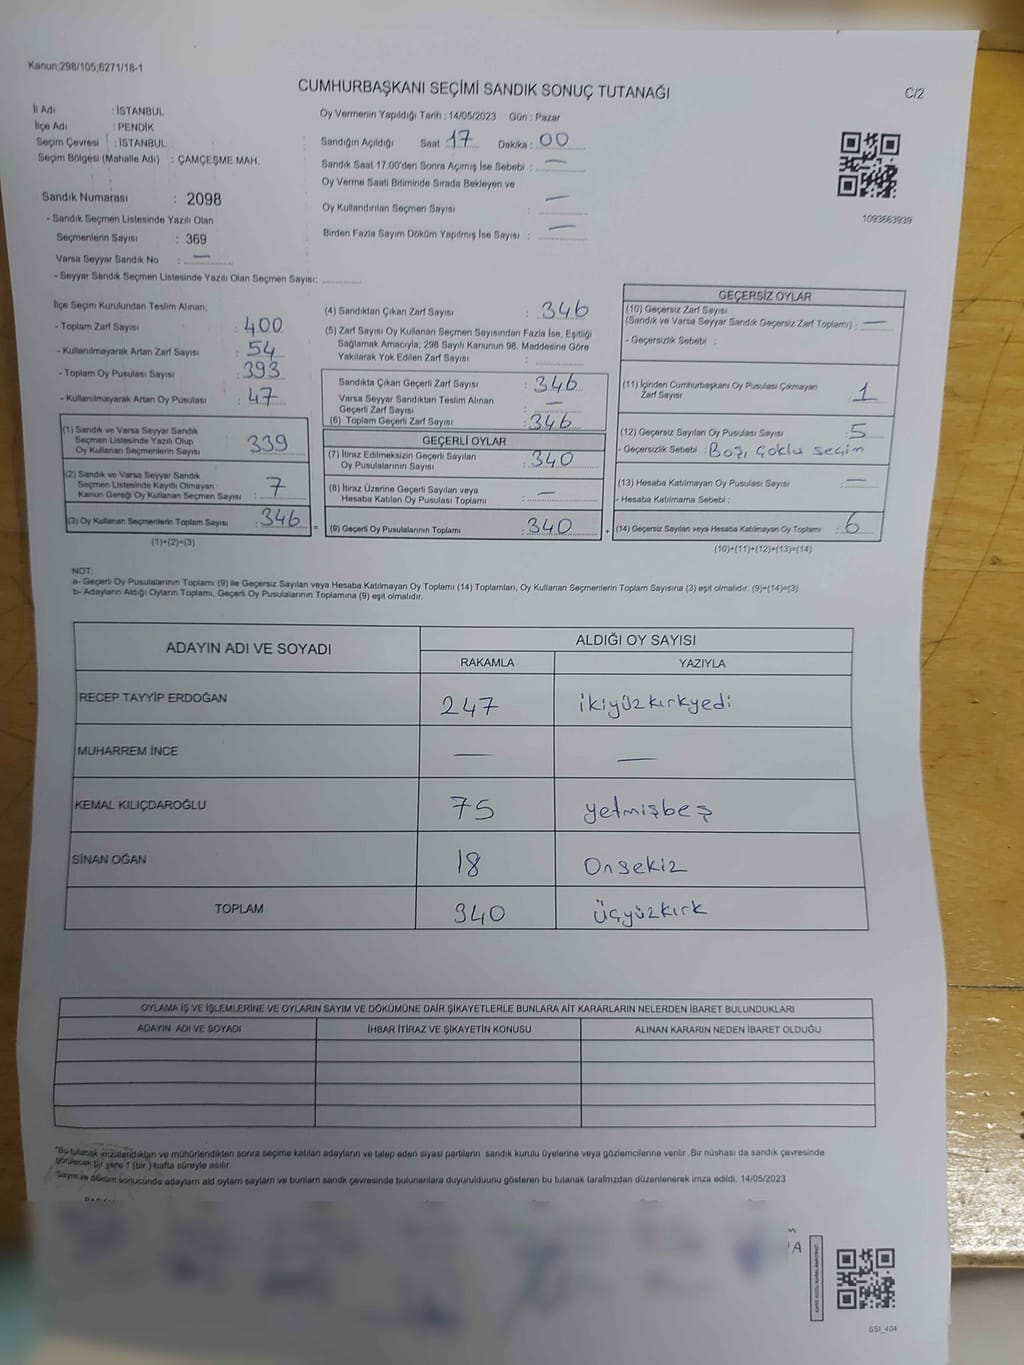 Kanun;298/105;6271/18-1
CUMHURBAŞKANI SEÇİMİ SANDIK SONUÇ TUTANAĞI
C/2
İl Adı : İSTANBUL
İlçe Adı : PENDİK
Seçim Çevresi : İSTANBUL
Seçim Bölgesi (Mahalle Adı) : ÇAMÇEŞME MAH.
Oy Vermenin Yapıldığı Tarih : 14/05/2023 Gün : Pazar
Sandığın Açıldığı Saat 17 Dakika : 00
Sandık Saat 17:00'den Sonra Açımış İse Sebebi : —
Oy Verme Saati Bitiminde Sırada Bekleyen ve
Oy Kullandırılan Seçmen Sayısı : —
Birden Fazla Sayım Döküm Yapılmış İse Sayısı : —
1093663939
Sandık Numarası : 2098
- Sandık Seçmen Listesinde Yazılı Olan
Seçmenlerin Sayısı : 369
Varsa Seyyar Sandık No : —
- Seyyar Sandık Seçmen Listesinde Yazılı Olan Seçmen Sayısı:
İlçe Seçim Kurulundan Teslim Alınan;
- Toplam Zarf Sayısı : 400
- Kullanılmayarak Artan Zarf Sayısı : 54
- Toplam Oy Pusulası Sayısı : 393
- Kullanılmayarak Artan Oy Pusulası : 47
(1) Sandık ve Varsa Seyyar Sandık
Seçmen Listesinde Yazılı Olup
Oy Kullanan Seçmenlerin Sayısı : 339
(2) Sandık ve Varsa Seyyar Sandık
Seçmen Listesinde Kayıtlı Olmayan
Kanun Gereği Oy Kullanan Seçmen Sayısı : 7
(3) Oy Kullanan Seçmenlerin Toplam Sayısı : 346
(1)+(2)=(3)
(4) Sandıktan Çıkan Zarf Sayısı : 346
(5) Zarf Sayısı Oy Kullanan Seçmen Sayısından Fazla İse, Eşitliği
Sağlamak Amacıyla; 298 Sayılı Kanunun 98. Maddesine Göre
Yakılarak Yok Edilen Zarf Sayısı :
Sandıkta Çıkan Geçerli Zarf Sayısı : 346
Varsa Seyyar Sandıktan Teslim Alınan
Geçerli Zarf Sayısı : —
(6) Toplam Geçerli Zarf Sayısı : 346
GEÇERLİ OYLAR
(7) İtiraz Edilmeksizin Geçerli Sayılan
Oy Pusulalarının Sayısı : 340
(8) İtiraz Üzerine Geçerli Sayılan veya
Hesaba Katılan Oy Pusulası Toplamı : —
= (9) Geçerli Oy Pusulalarının Toplamı : 340 +
GEÇERSİZ OYLAR
(10) Geçersiz Zarf Sayısı
(Sandık ve Varsa Seyyar Sandık Geçersiz Zarf Toplamı) : —
- Geçersizlik Sebebi :
(11) İçinden Cumhurbaşkanı Oy Pusulası Çıkmayan
Zarf Sayısı : 1
(12) Geçersiz Sayılan Oy Pusulası Sayısı : 5
- Geçersizlik Sebebi : Boş, çoklu seçim
(13) Hesaba Katılmayan Oy Pusulası Sayısı : —
- Hesaba Katılmama Sebebi :
(14) Geçersiz Sayılan veya Hesaba Katılmayan Oy Toplamı : 6
(10)+(11)+(12)+(13)=(14)
NOT:
a- Geçerli Oy Pusulalarının Toplamı (9) ile Geçersiz Sayılan veya Hesaba Katılmayan Oy Toplamı (14) Toplamları, Oy Kullanan Seçmenlerin Toplam Sayısına (3) eşit olmalıdır. (9)+(14)=(3)
b- Adayların Aldığı Oyların Toplamı, Geçerli Oy Pusulalarının Toplamına (9) eşit olmalıdır.
ADAYIN ADI VE SOYADI
ALDIĞI OY SAYISI
RAKAMLA YAZIYLA
RECEP TAYYİP ERDOĞAN 247 ikiyüzkırkyedi
MUHARREM İNCE — —
KEMAL KILIÇDAROĞLU 75 yetmişbeş
SİNAN OĞAN 18 Onsekiz
TOPLAM 340 üçyüzkırk
OYLAMA İŞ VE İŞLEMLERİNE VE OYLARIN SAYIM VE DÖKÜMÜNE DAİR ŞİKAYETLERLE BUNLARA AİT KARARLARIN NELERDEN İBARET BULUNDUKLARI
ADAYIN ADI VE SOYADI İHBAR İTİRAZ VE ŞİKAYETİN KONUSU ALINAN KARARIN NEDEN İBARET OLDUĞU
*Bu tutanak imzalandıktan ve mühürlendikten sonra seçime katılan adayların ve talep eden siyasi partilerin sandık kurulu üyelerine veya gözlemcilerine verilir .Bir nüshası da sandık çevresinde
görülecek bir yere 1 (bir ) hafta süreyle asılır.
*Sayım ve döküm sonucunda adayların ald oyların sayları ve bunların sandk çevresinde bulunanlara duyurulduunu gösteren bu tutanak tarafmzdan düzenlenerek imza edildi. 14/05/2023
SSI_404